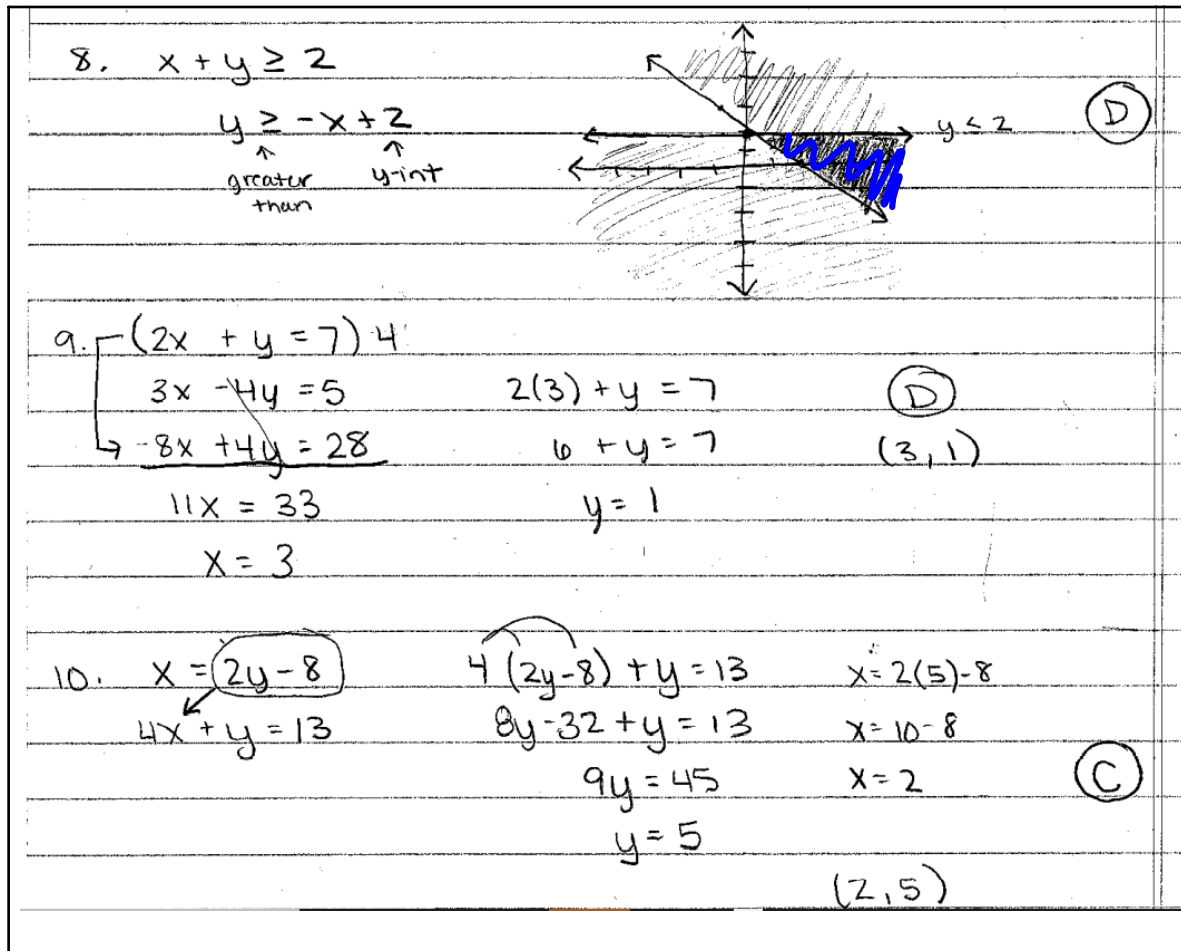 8. x + y ≥ 2
y ≥ -x + 2
greater than
y-int
y ≤ 2
D
9. (2x + y = 7) 4
3x - 4y = 5
-8x + 4y = 28
11x = 33
x = 3
2(3) + y = 7
6 + y = 7
y = 1
D
(3,1)
10. x = 2y - 8
4x + y = 13
4(2y-8) + y = 13
8y - 32 + y = 13
9y = 45
y = 5
x = 2(5) - 8
x = 10 - 8
x = 2
C
(2,5)